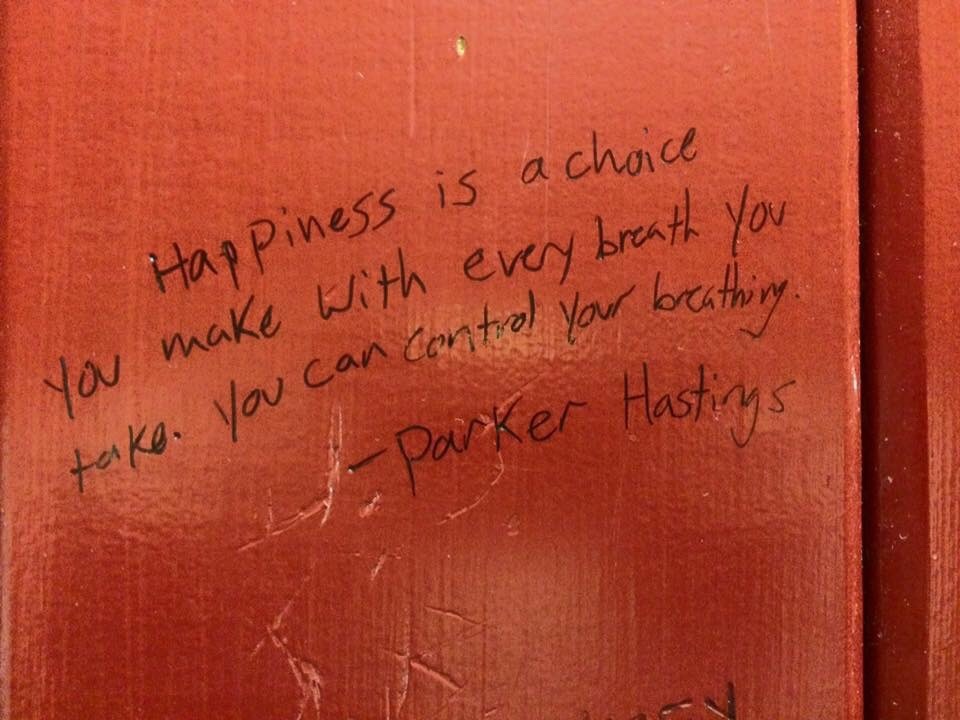 Happiness is a choice
You make with every breath you
take. You can control your breathing.
- Parker Hastings